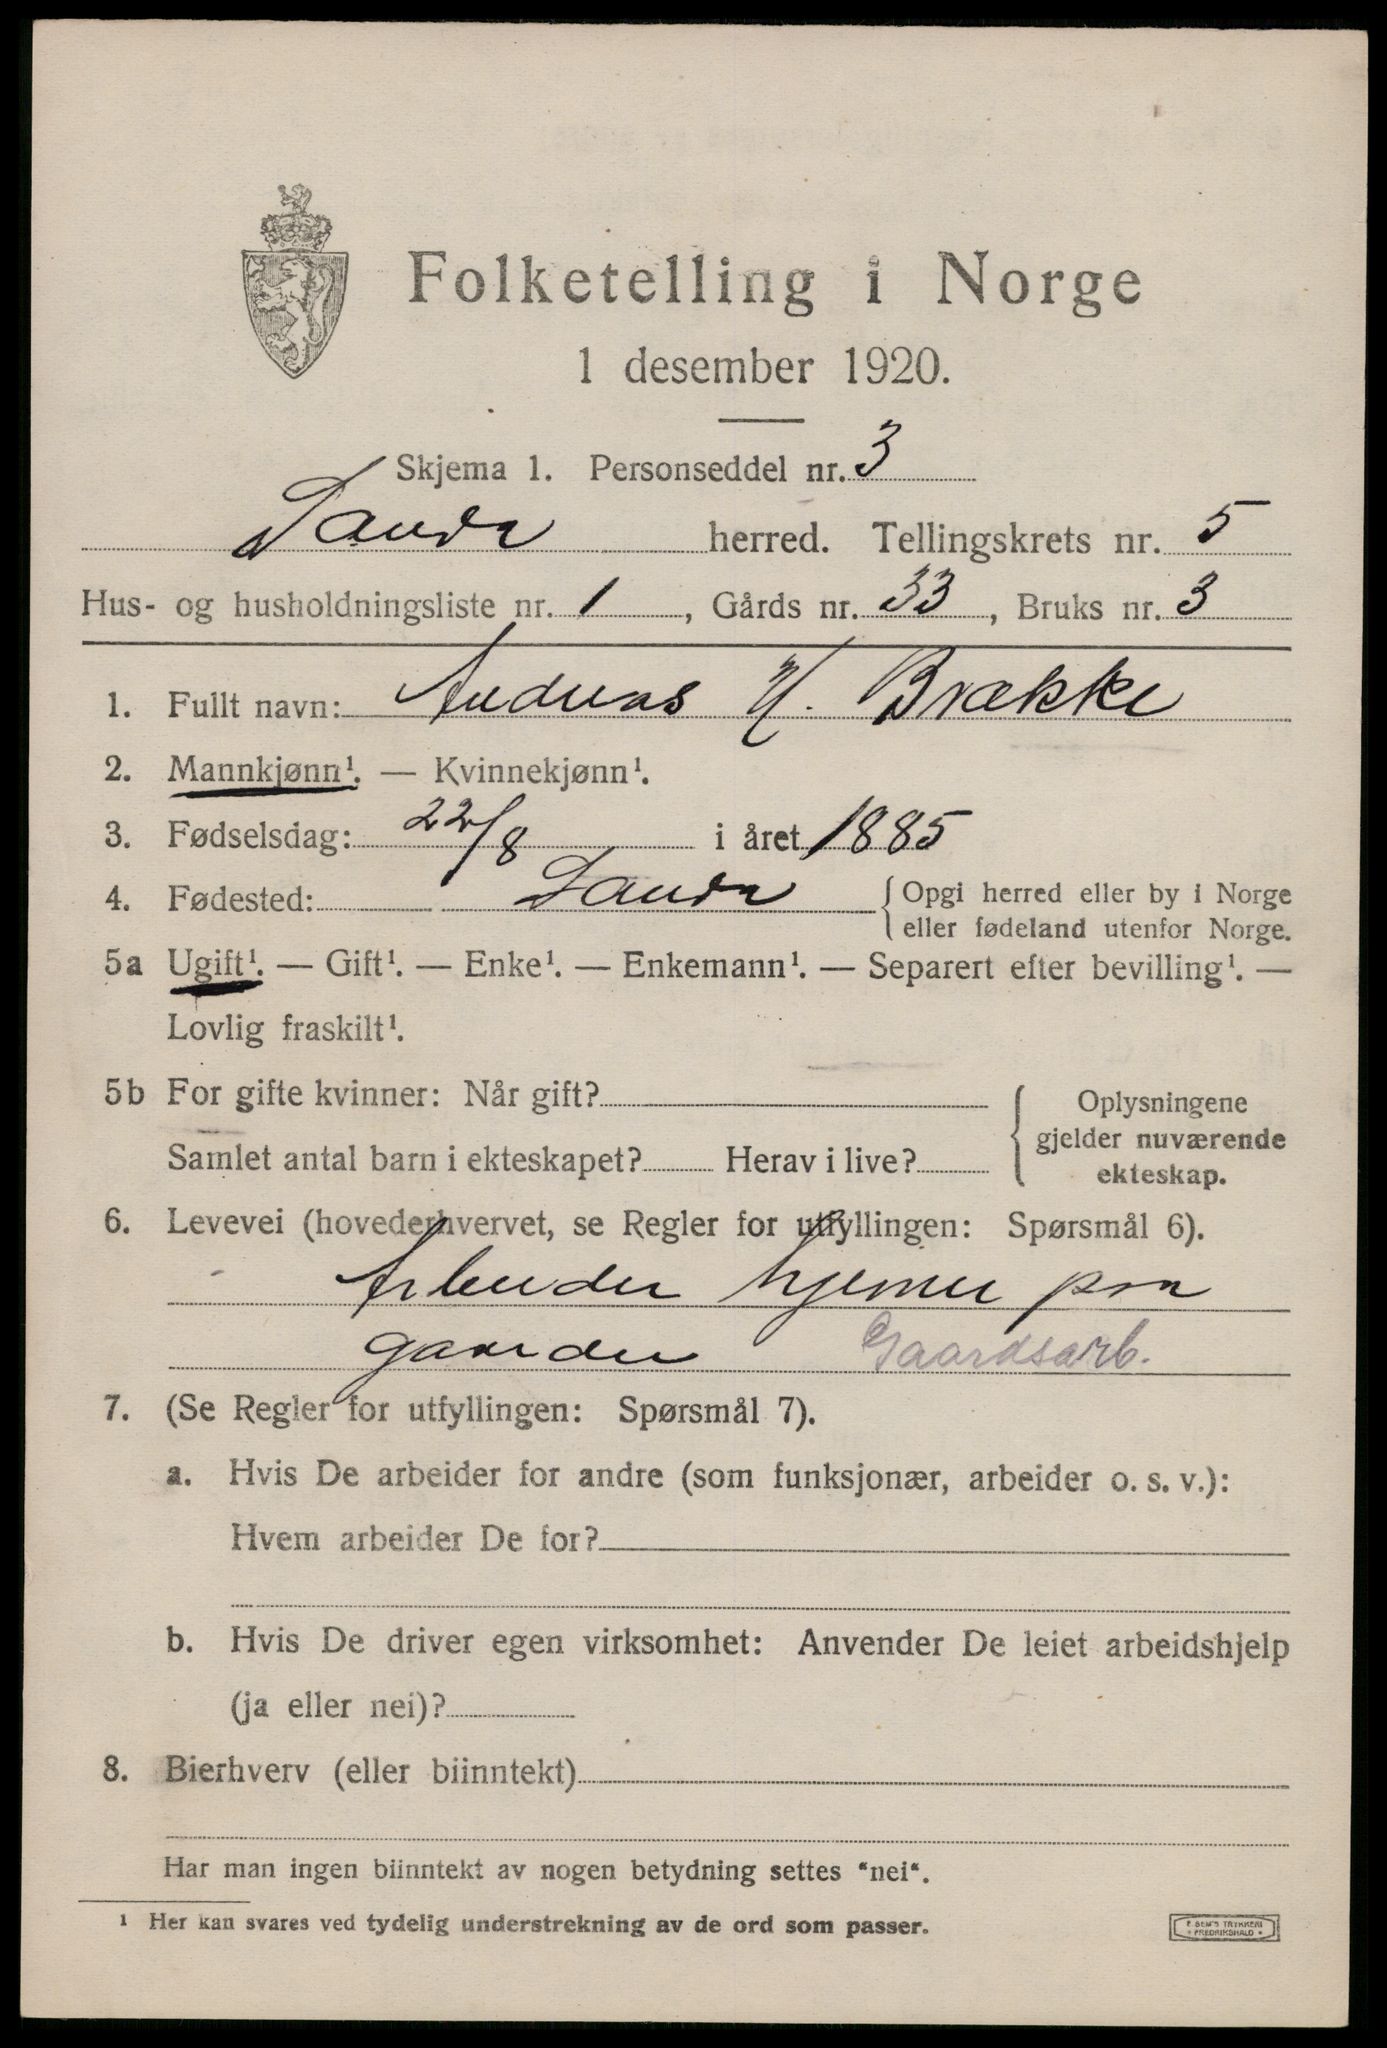 Folketelling i Norge
1 desember 1920.
Skjema 1. Personseddel nr. 3
Sauda herred. Tellingskrets nr. 5
Hus- og husholdningsliste nr. 1, Gårds nr. 33, Bruks nr. 3
1. Fullt navn: Andreas N. Brække
2. Mannkjønn¹. — Kvinnekjønn¹.
3. Fødselsdag: 22/8 i året 1885
4. Fødested: Sauda { Opgi herred eller by i Norge
eller fødeland utenfor Norge.
5a Ugift¹. — Gift¹. — Enke¹. — Enkemann¹. — Separert efter bevilling¹. —
Lovlig fraskilt¹.
5b For gifte kvinner: Når gift?
Samlet antal barn i ekteskapet? Herav i live?
{ Oplysningene
gjelder nuværende
ekteskap.
6. Levevei (hovederhvervet, se Regler for utfyllingen: Spørsmål 6).
Arbeider hjemme paa
gaarden Gaardsarb.
7. (Se Regler for utfyllingen: Spørsmål 7).
a. Hvis De arbeider for andre (som funksjonær, arbeider o. s. v.):
Hvem arbeider De for?
b. Hvis De driver egen virksomhet: Anvender De leiet arbeidshjelp
(ja eller nei)?
8. Bierhverv (eller biinntekt)
Har man ingen biinntekt av nogen betydning settes "nei".
¹ Her kan svares ved tydelig understrekning av de ord som passer.
E. SEM'S TRYKKERI
FREDRIKSHALD